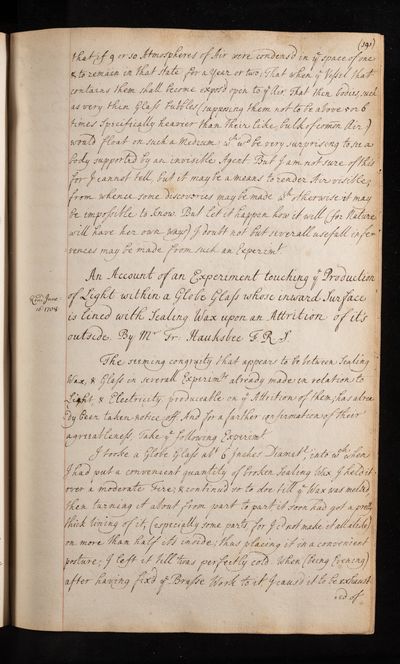 (191)
that if 9 or 10 Atmospheres of Air were condens'd in yͤ space of one
& to remain in that State for a year or two; That when yͤ Vessel that
contains them shall become expos'd open to yͤ Air, That then bodies, such
as very thin Glass Bubbles (supposing them not to be above 5 or 6
times specifically heavier than their like bulk of com̄on Air)
would float on such a Medium: wᶜʰ wᵈ be very surprising to see a
body supported by an invisible Agent. But I am not sure of this
for I cannot tell but it may be a means to render Air visible;
from whence some discoveries may be made wᶜʰ otherwise it may
be impossible to know. But let it happen how it will (for Nature
will have her own way) I doubt not but severall usefull infe=
rences may be made from such an Experimᵗ
An Account of an Experiment touching yͤ Production
of Light within a Globe Glass whose inward Surface
is lined with Sealing Wax upon an Attrition of it's
outside. By Mʳ Fr: Hauksbee F R S.
Read June
16 1708
The seeming congruity that appears to be between Sealing
Wax, & Glass in severall Experimᵗˢ already made in relation to
Light & Electricity produceable on yͤ Attrition of them, has alrea
dy been taken notice off. And for a farther confirmation of their
agreeableness, Take yͤ following Experimᵗ
I tooke a Globe Glass abᵗ 6 Inches Diametʳ, into wᶜʰ when
I had put a convenient quantity of broken Sealing Wax I held it
over a moderate Fire, & continud so to doe till yͤ Wax was melted,
then turning it about from part to part it soon had got a pretty
thick lining of it, (especially some parts for I cd not make it all alike)
on more than half its inside; thus placing it in a convenient
posture; I left it till twas perfectly cold. When (being Evening)
after having fix'd yͤ Brasse Work to it I caus'd it to be exhaust
ed of